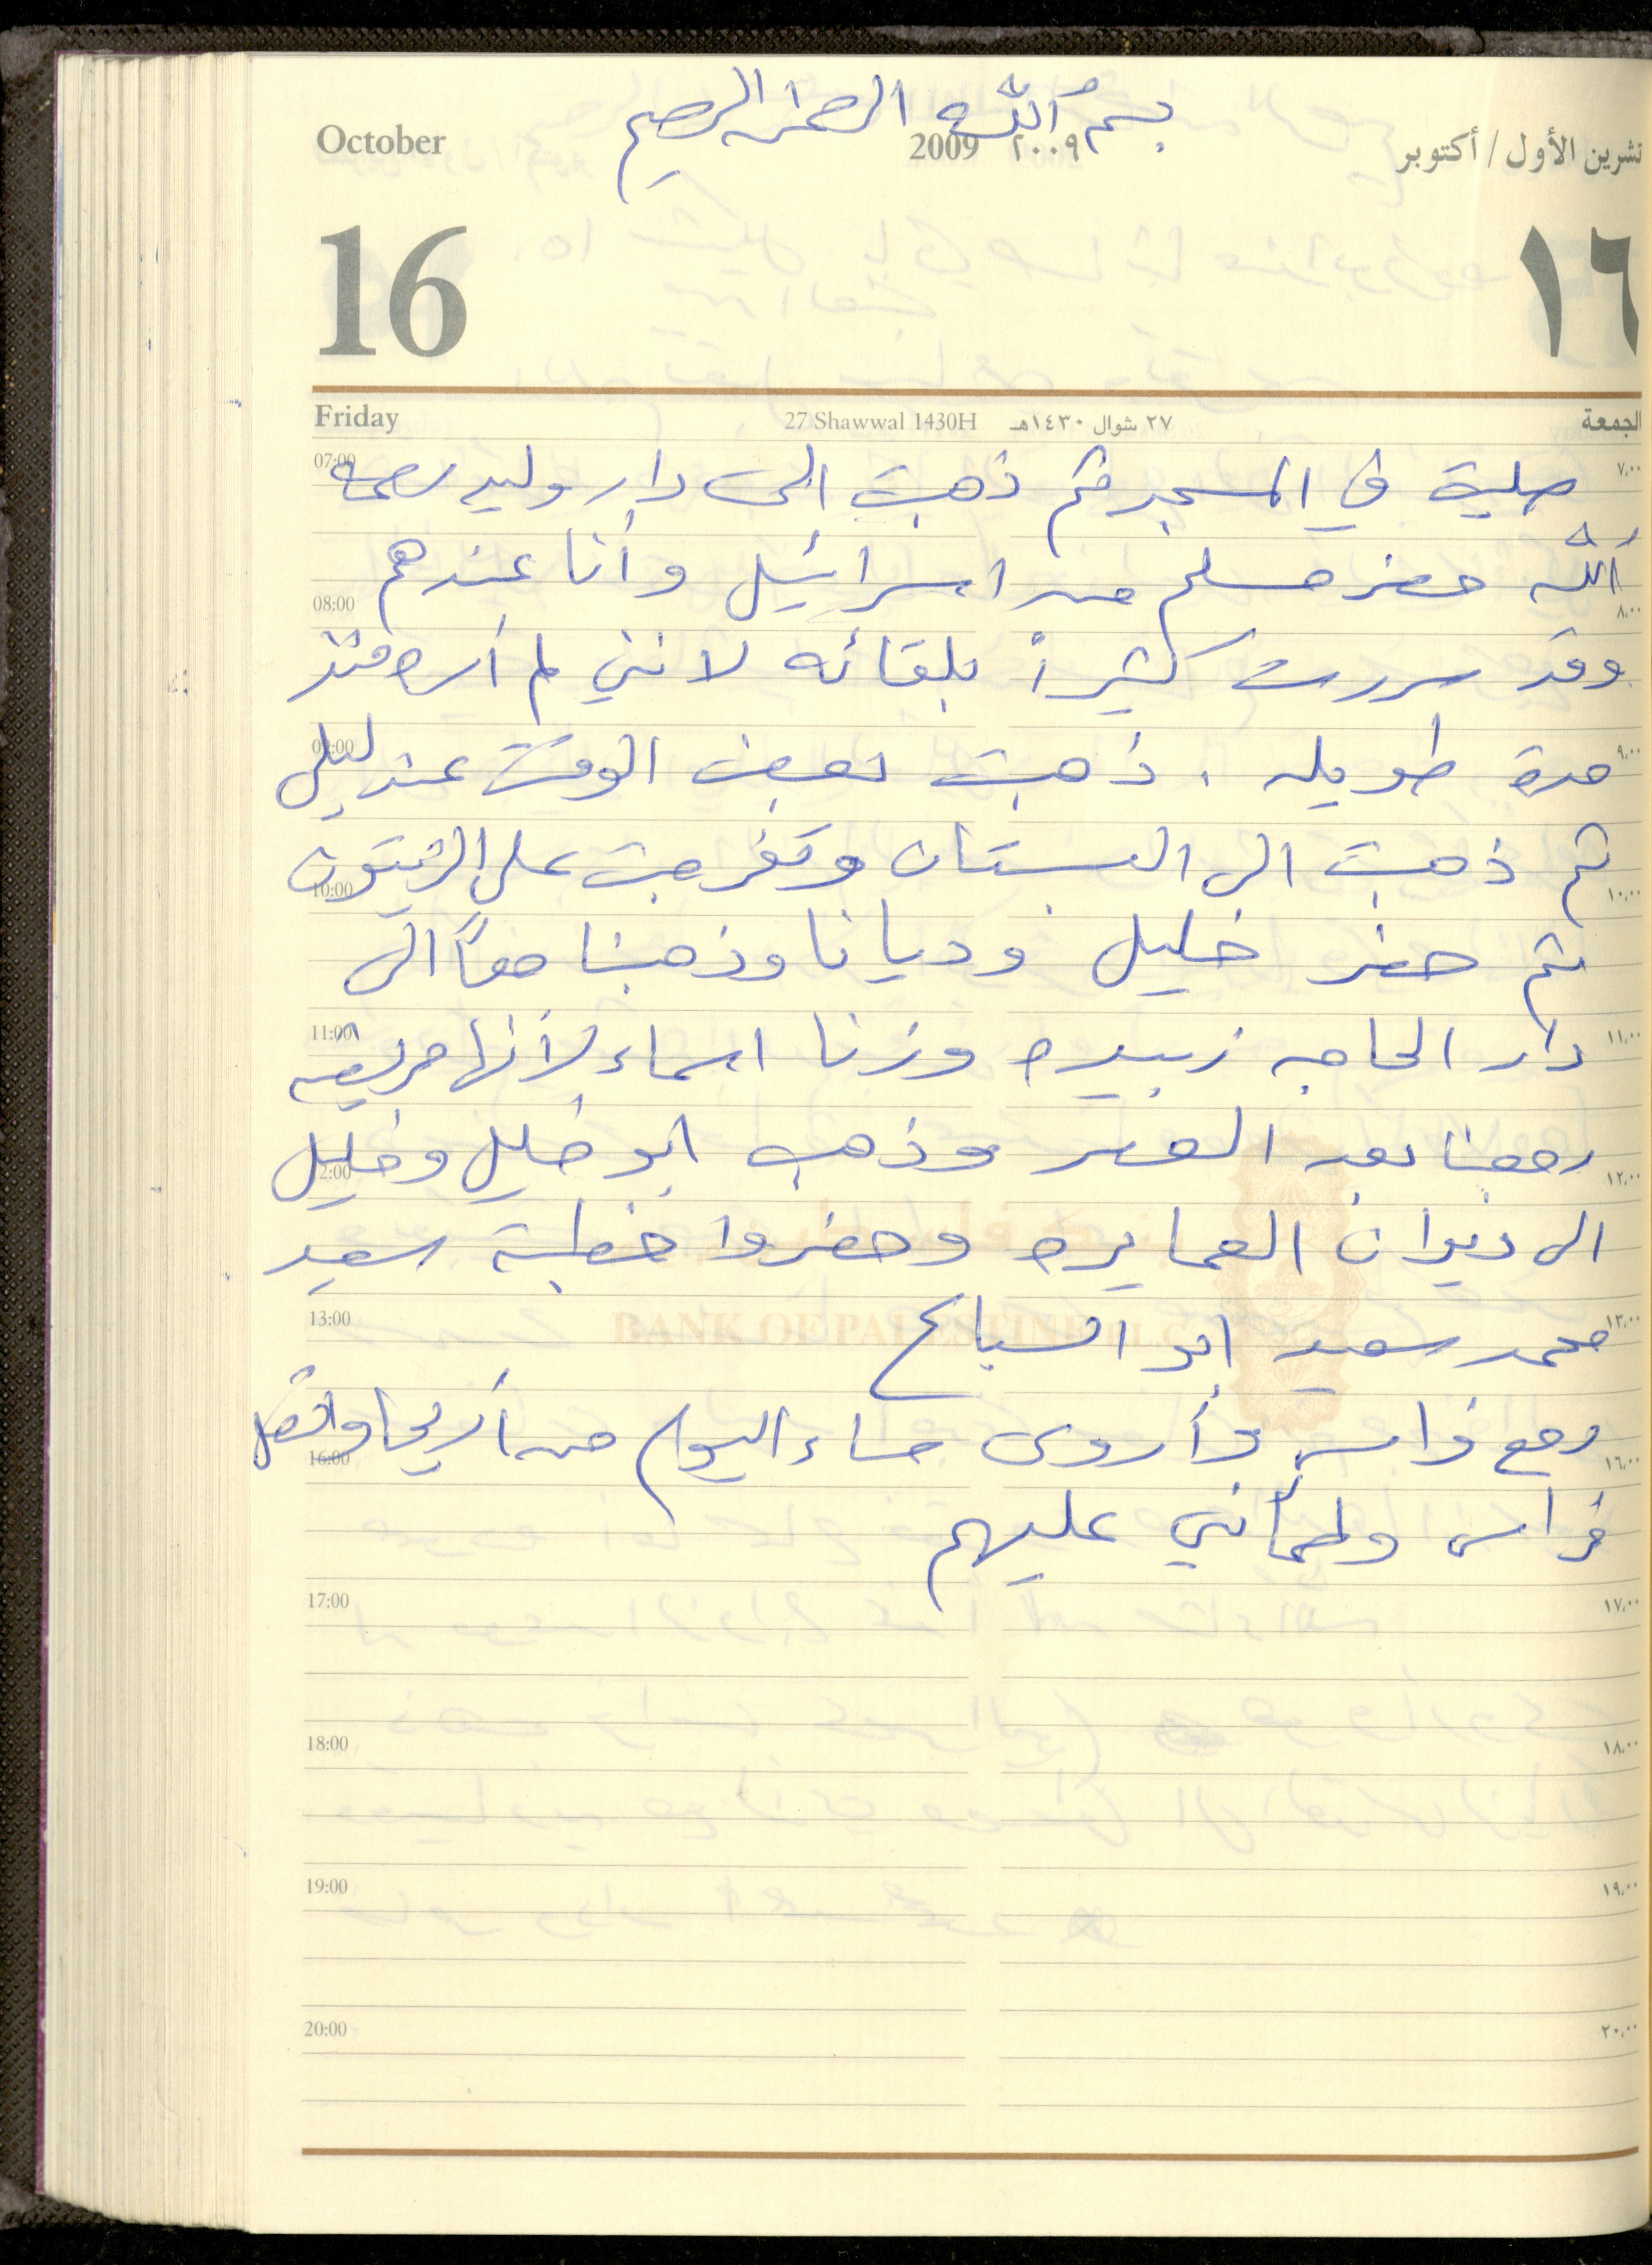 بسم الله الرحمن الرحيم
October 2009 ٢٠٠٩ تشرين الأول / أكتوبر
16 ١٦
Friday 27 Shawwal 1430H ٢٧ شوال ١٤٣٠هـ الجمعة
07:00 ٧,٠٠
صليت في المسجد ثم ذهبت الى دار وليد رحمه
الله حضر مسلم من اسرائيل وأنا عندهم
08:00 ٨,٠٠
وقد سررت كثيراً بلقائه لانني لم أره منذ
09:00 ٩,٠٠
مدة طويله . ذهبت بعض الوقت عند ليلى
ثم ذهبت الى البستان وتفرجت على الزيتون
10:00 ١٠,٠٠
ثم حضر خليل وديانا وذهبنا معاً الى
11:00 ١١,٠٠
دار الحاجه زبيده وزرنا اسماء لأنها مريضه
رجعنا بعد العصر وذهب ابو خليل وخليل
12:00 ١٢,٠٠
الى ديوان العمايره وحضروا خطبة سعيد
13:00 ١٣,٠٠
محمد سعيد ابو السباع
BANK OF PALESTINE P.L.C
رجع فراس وأروى مساء اليوم من أريحا واتصل
16:00 ١٦,٠٠
فراس وطمأنني عليهم
17:00 ١٧,٠٠
18:00 ١٨,٠٠
19:00 ١٩,٠٠
20:00 ٢٠,٠٠